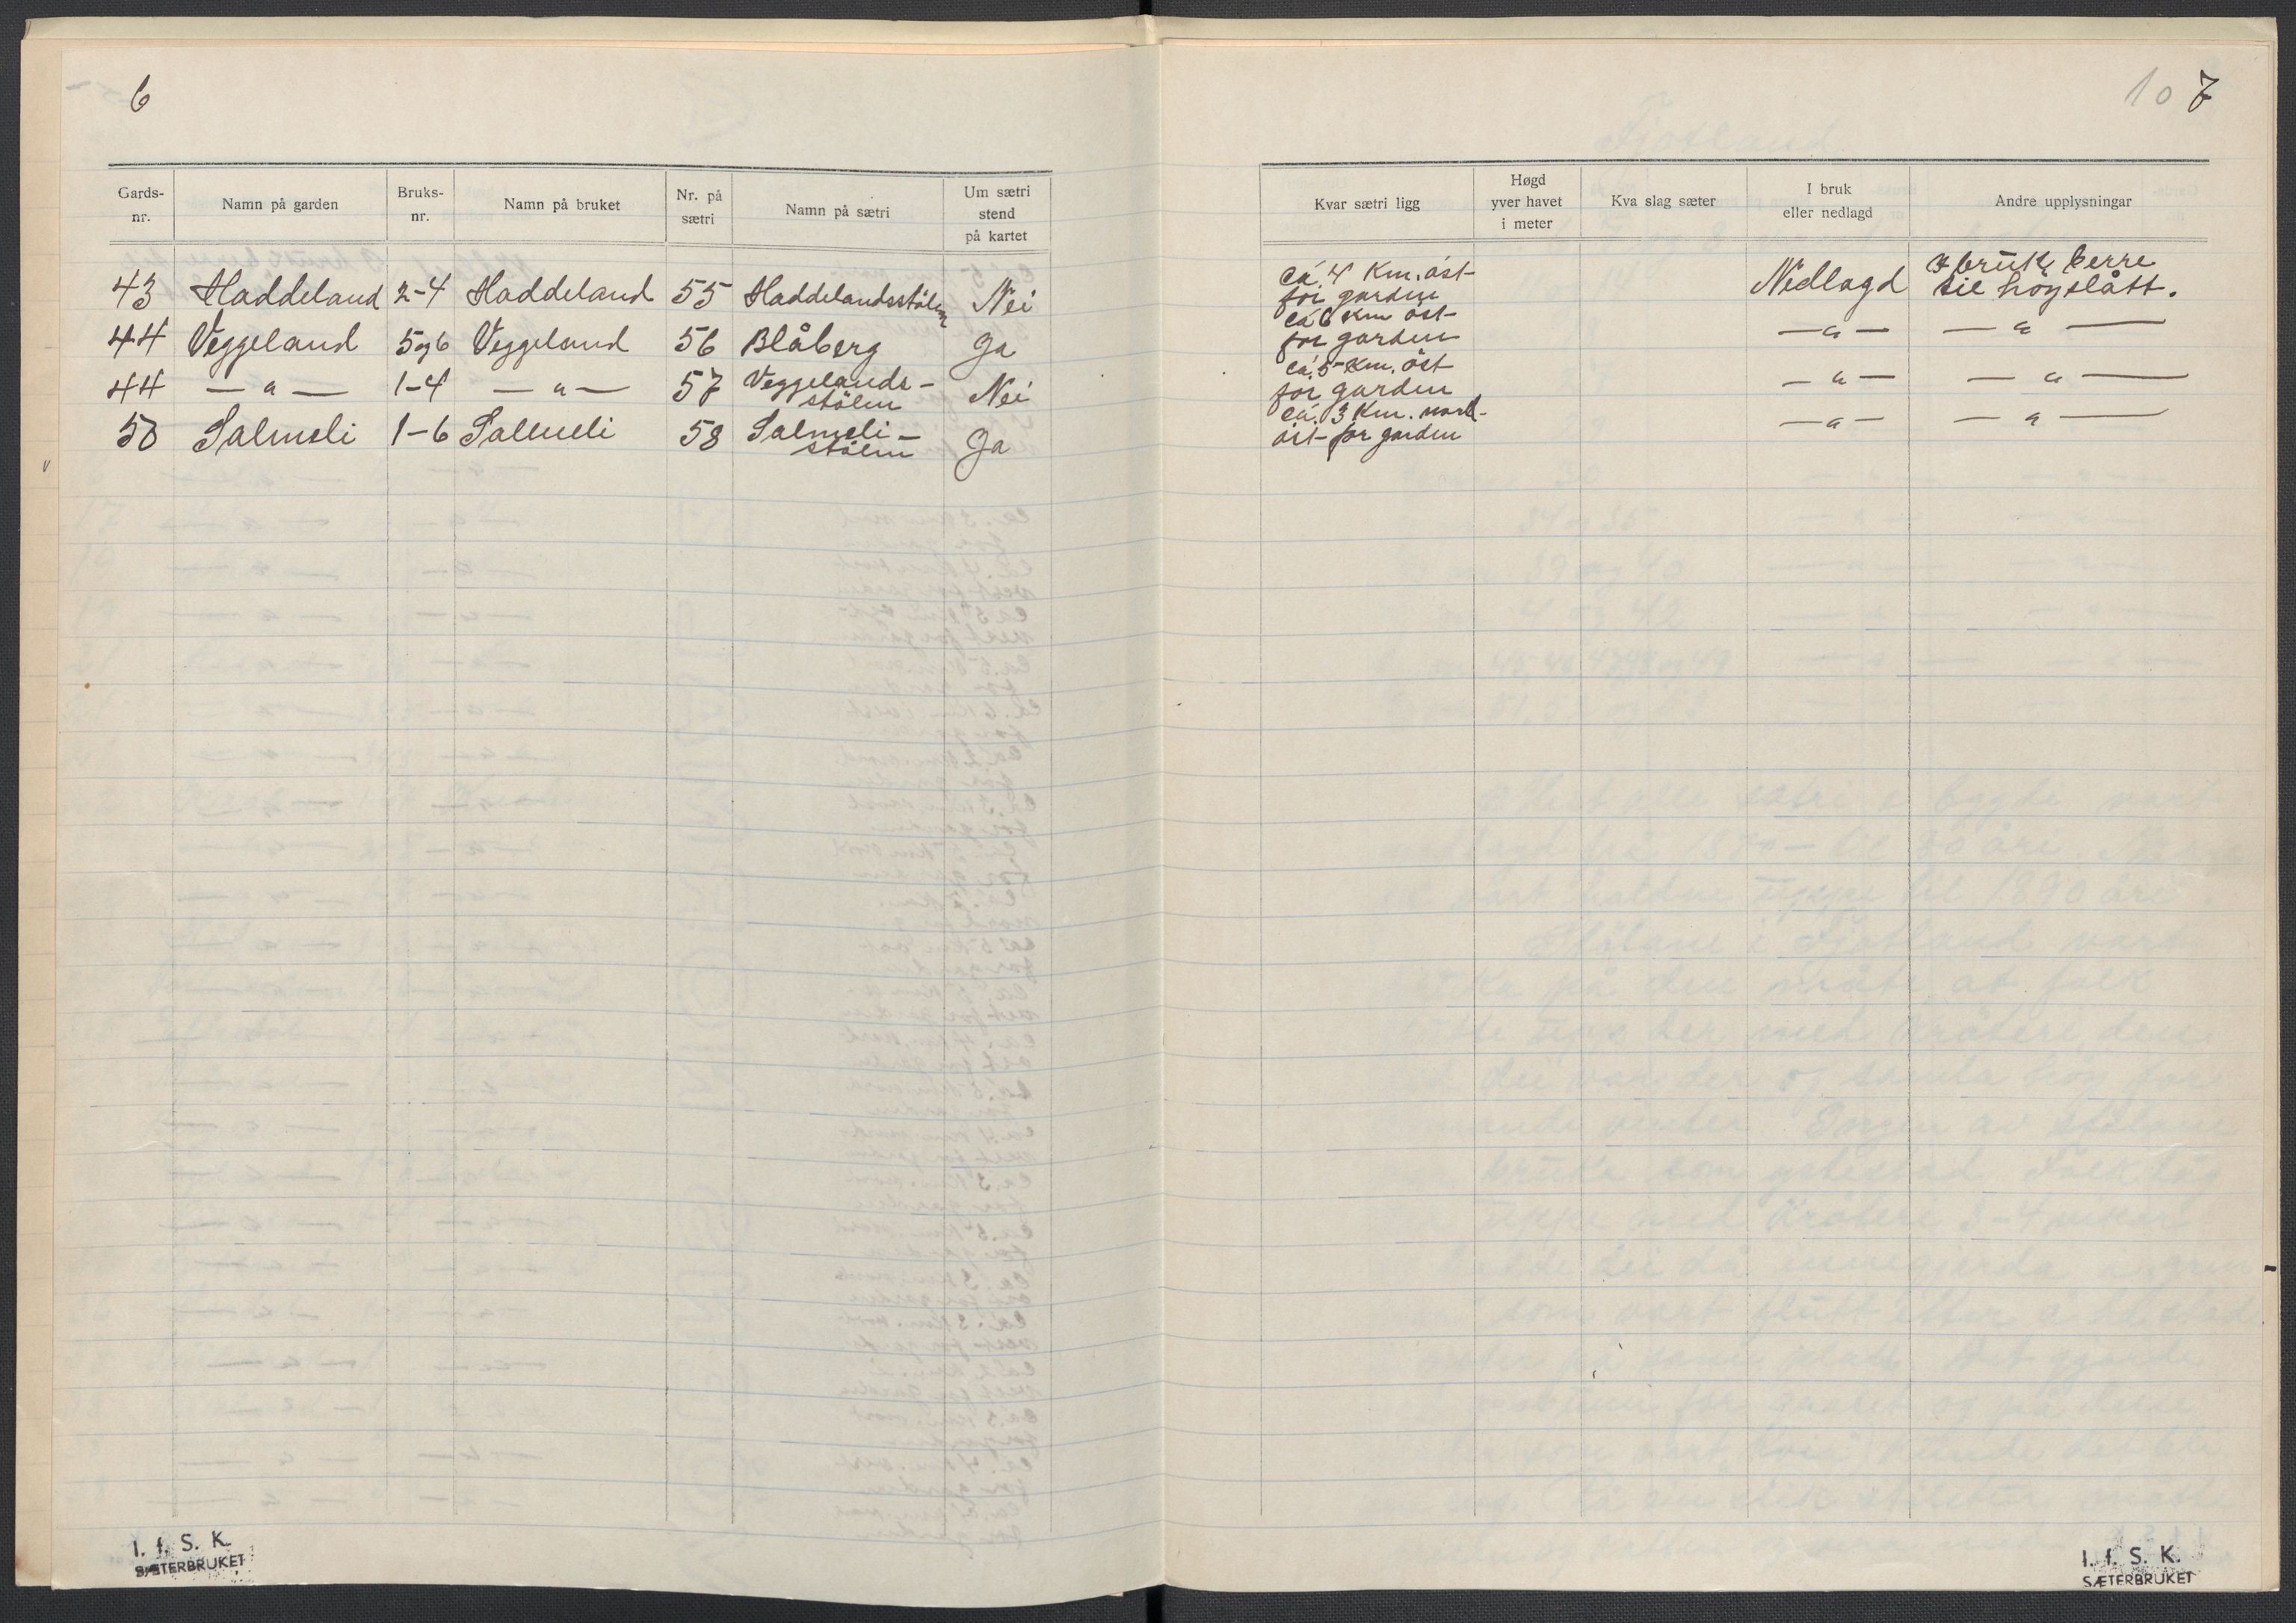 6
Gards-nr. Namn på garden Bruks-nr. Namn på bruket Nr. på sætri Namn på sætri Um sætri stend på kartet
43 Haddeland 2-4 Haddeland 55 Haddelandsstölen Nei
44 Veggeland 5og6 Veggeland 56 Blåberg Ja
44 — " — 1-4 — " — 57 Veggelands-
stölen Nei
50 Salmeli 1-6 Salmeli 58 Salmeli-
stölen Ja
I. f. S. K.
SÆTERBRUKET
10 7
Kvar sætri ligg Høgd yver havet i meter Kva slag sæter I bruk eller nedlagd Andre upplysningar
ca. 4 Km. öst-
for garden Nedlagd I bruk berre
til höyslått.
ca 6 Km öst-
for garden — " — — " —
ca. 5 Km. öst
for garden — " — — " —
ca. 3 Km. nord-
öst for garden — " — — " —
I. f. S. K.
SÆTERBRUKET